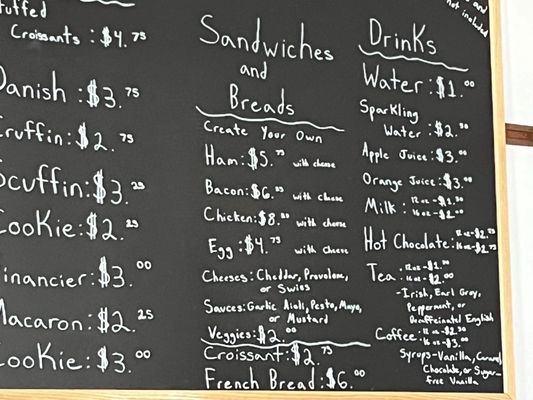 tuffed
Croissants : $4.75
Danish : $3.75
Cruffin: $2.75
Scuffin: $3.25
Cookie: $2.25
inancier: $3.00
Macaron: $2.25
Cookie: $3.00
Sandwiches
and
Breads
Create Your Own
Ham: $5.75 with cheese
Bacon: $6. with cheese
Chicken: $8. with cheese
Egg: $4.75 with cheese
Cheeses: Cheddar, Provolone,
or Swiss
Sauces: Garlic Aioli, Pesto, Mayo,
or Mustard
Veggies: $2.00
Croissant: $2.75
French Bread: $6.00
and
not included
Drinks
Water: $1.00
Sparkling
Water : $2.50
Apple Juice: $3.00
Orange Juice: $3.00
Milk : 12 oz - $1.50
16 oz - $2.00
Hot Chocolate: 12 oz - $2.
16 oz - $2.75
Tea : 12 oz - $1.50
16 oz - $2.00
- Irish, Earl Grey,
Peppermint, or
Decaffeinated English
Coffee: 12 oz - $2.50
16 oz - $3.00
Syrups - Vanilla, Caramel
Chocolate, or Sugar
free Vanilla